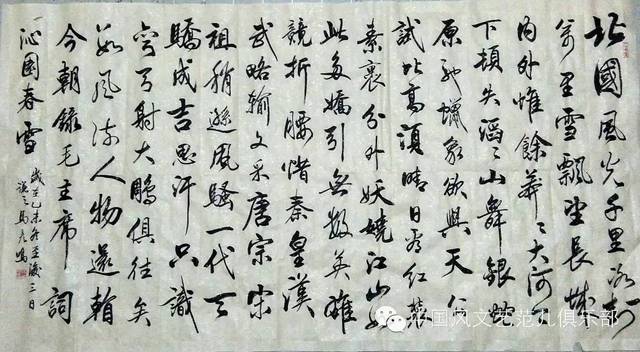 北國風光千里冰封
萬里雪飄望長城
内外惟餘莽々大河上
下頓失滔々山舞銀蛇
原馳蠟象欲與天公
試比高須晴日看紅裝
素裹分外妖嬈江山如
此多嬌引無數英雄
競折腰惜秦皇漢
武略輸文采唐宗宋
祖稍遜風騷一代天
驕成吉思汗只識
彎弓射大鵰俱往矣
數風流人物還看
今朝錄毛主席詞
沁園春雪
歲在乙未冬至後三日
中国风文艺范儿俱乐部